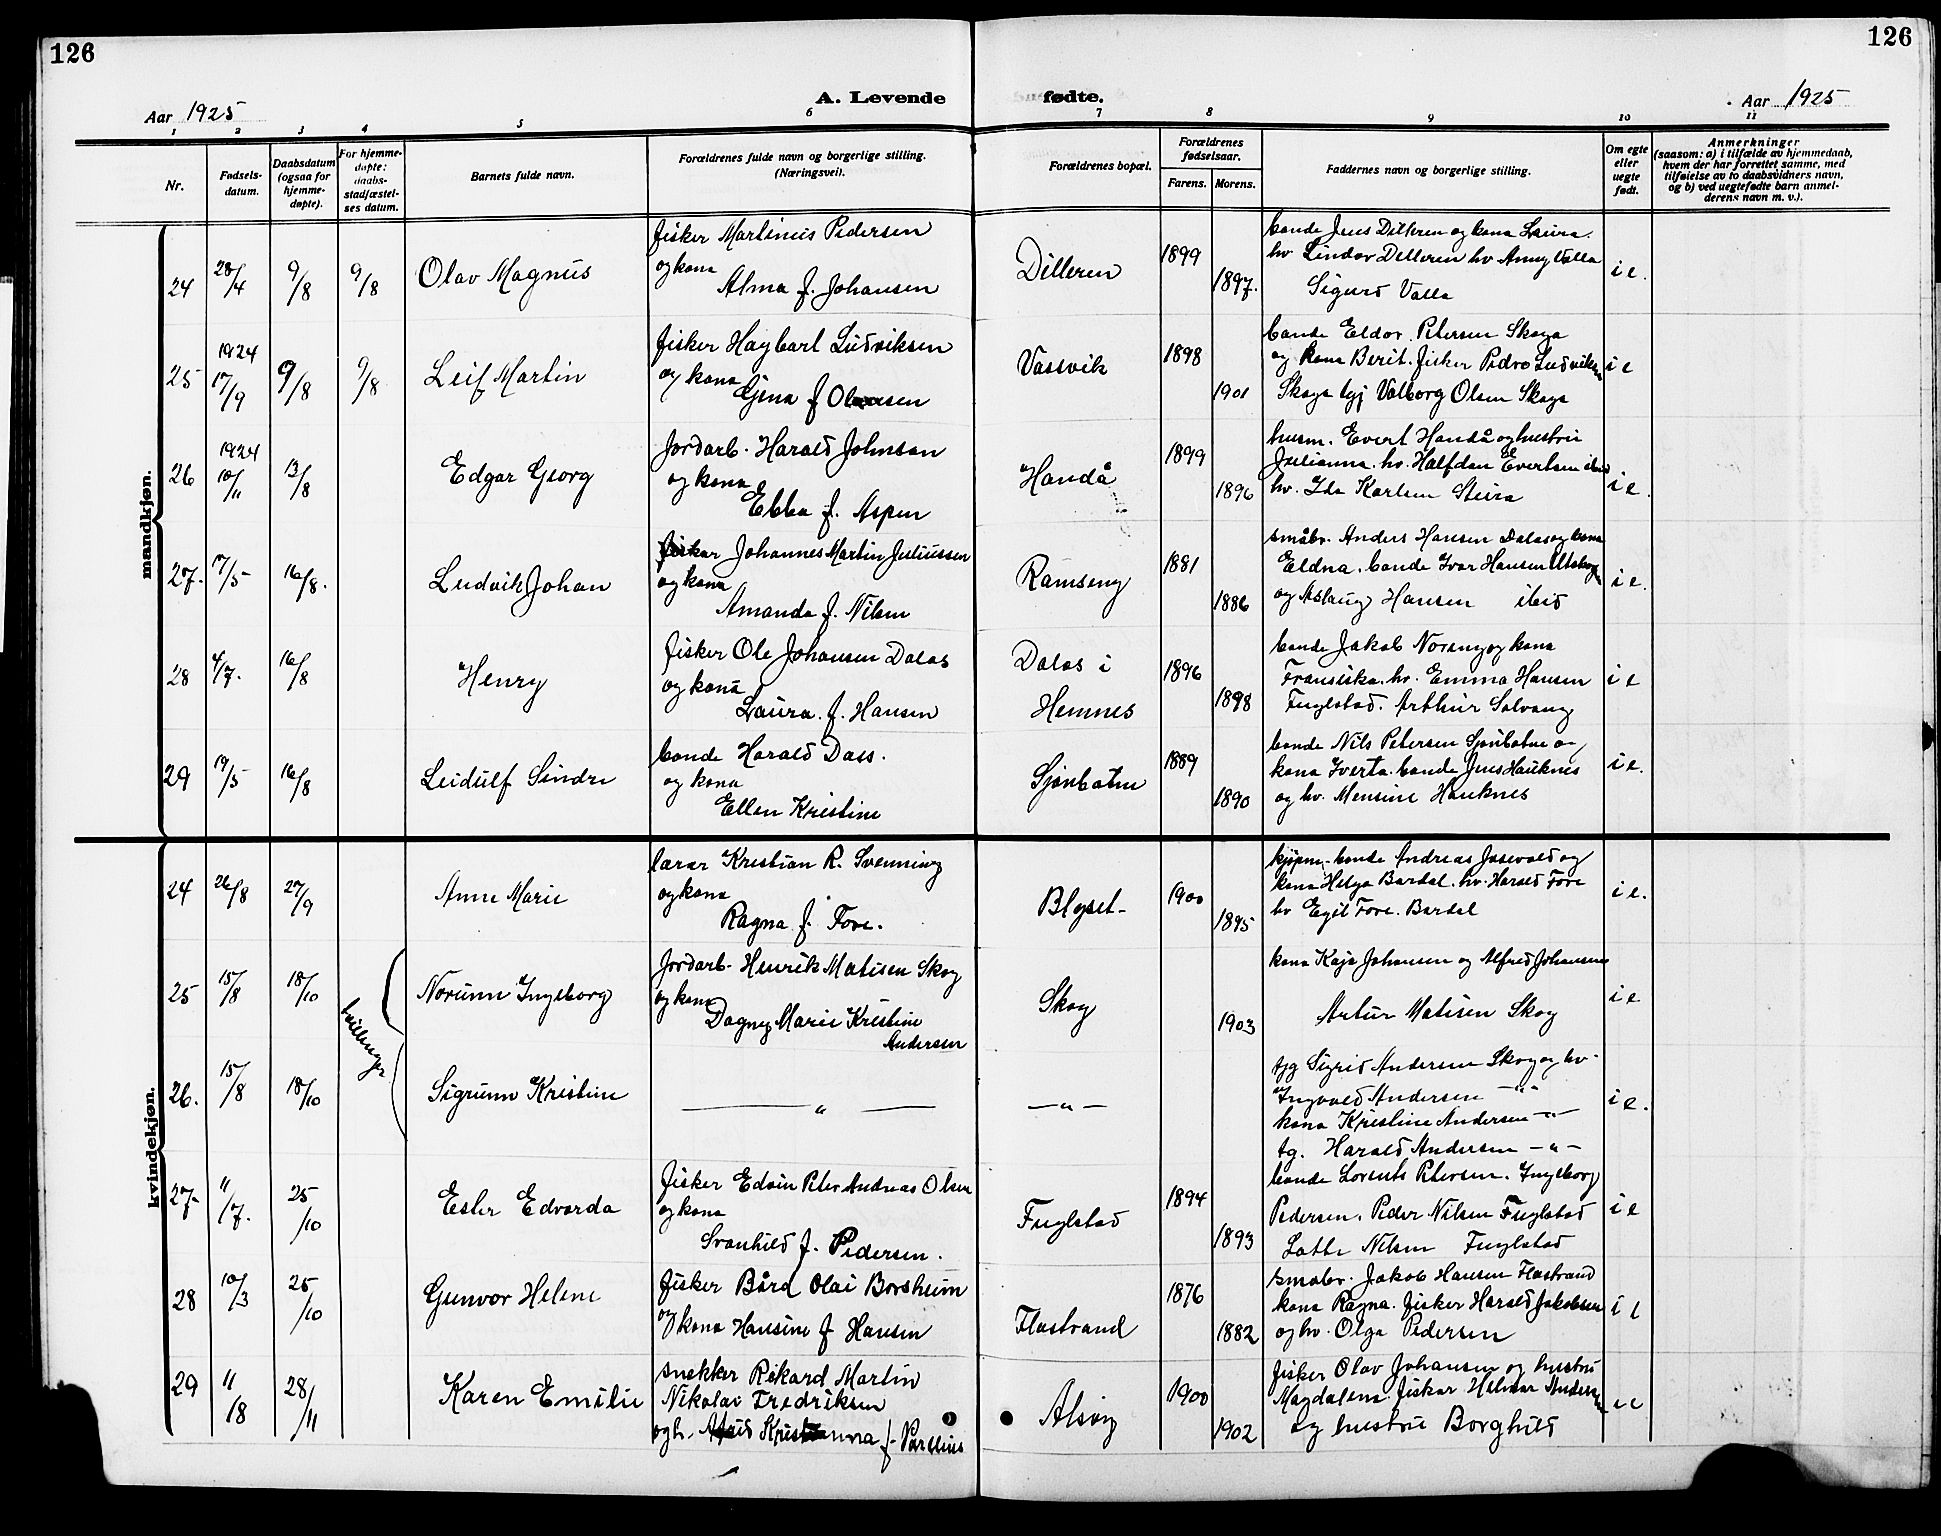 126
126
A. Levende fødte.
Aar 1925
Aar 1925
1 2 3 4 5 6 7 8 9 10 11
Nr.
Fødsels-
datum.
Daabsdatum
(ogsaa for
hjemme-
døpte).
For hjemme-
døpte:
daabs-
stadfæstel-
ses datum.
Barnets fulde navn.
Forældrenes fulde navn og borgerlige stilling.
(Næringsvei).
Forældrenes bopæl.
Forældrenes
fødselsaar.
Farens. Morens.
Faddernes navn og borgerlige stilling.
Om egte
eller
uegte
født.
Anmerkninger
(saasom: a) i tilfælde av hjemmedaab,
hvem der har forrettet samme, med
tilføielse av to daabsvidners navn,
og b) ved uegtefødte barn anmel-
derens navn m. v.).
mandkjøn.
24 28/4 9/8 9/8 Olav Magnus
fisker Martinus Pedersen
og kona
Alma f. Johansen
Dilleren 1899 1897.
bonde Jens Dilleren og kona Laura.
hv Lindor Dilleren hv Anny Valla
Sigurd Valla
i e.
25 1924 17/9 9/8 9/8 Leif Martin
fisker Hagbart Ludviksen
og kona
Gjena f Olausen
Vassvik 1898 1901
bonde Eldor Petersen Skaga
og kona Berit. fisker Pedro Ludviksen
Skaga tgj Valborg Olsen Skaga
i e
26 1924 10/11 13/8 Edgar Georg
Jordarb. Harald Johnsen
og kona
Ebba f. Aspen
Handå 1899 1896
husm. Evert Handå og hustru
Julianna. hv. Halfdan Evertsen ibid
hv. Ida Karlsen Steira
i e.
27. 17/5 16/8. Ludvik Johan
fisker Johannes Martin Juliussen
og kona
Amanda f. Nilsen
Ramseng 1881 1886
småbr. Anders Hansen Dalas og kona
Eldna. bonde Ivar Hansen
og Aslaug Hansen ibid
i e.
28 4/7. 16/8 Henry
fisker Ole Johansen Dalas
og kona
Laura. f. Hansen
Dalas i
Hemnes
1896 1898
bonde Jakob Norang og kona
Fransiska. hv. Emma Hansen
Fuglstad. Arthur Solvang
i e
29 19/5 16/8 Leidulf Sindre
bonde Harald Dass.
og kona
Ellen Kristine
Sjonbotn 1889 1890
bonde Nils Petersen Sjonbotn og
kona Iverta. bonde Jens Hauknes
og hv. Mensine Hauknes
i e.
kvindekjøn.
24 26/8 27/9 Anne Marie
lærer Kristian R. Svenning
og kona
Ragna f. Fore.
Blyset 1900 1895
kjøpm. bonde Andreas
kona Helga Bardal. hv. Harald Fore
hv Egil Fore. Bardal
i e.
tvillinger
25 15/8 18/10 Norunn Ingeborg
Jordarb. Henrik Matisen Skog
og kona
Dagny Marie Kristine
Andersen
Skog 1903
kona Kaja Johansen og Alfred Johansen
Artur Matisen Skog
i e
26. 15/8 18/10 Sigrunn Kristine
— " —
— " —
tjg Sigrid Andersen Skog og hv.
Ingvald Andersen — " —
kona Kristine Andersen — " —
tg. Harald Andersen — " —
i e.
27. 11/7. 25/10 Ester Edvarda
fisker Edvin Peter Andreas Olsen
og kona
Svanhild f. Pedersen.
Fuglstad 1894 1893
bonde Lorents Petersen. Ingeborg
Pedersen. Peder Nilsen Fuglstad
Lotte Nilsen Fuglstad
i e
28 10/3 25/10 Gunvor Helene
fisker Bård Olai Borsheim
og kona Hansine f Hansen
Flostrand 1876 1882
småbr. Jakob Hansen Flostrand
kona Ragna. fisker Harald Jakobsen
og hv. Olga Pedersen
i e
29 11/8 28/11 Karen Emilie
snekker Rikard Martin
Nikolai Fredriksen
og h.
Alsvig 1900 1902
fisker Olav Johansen og hustru
Magdalena. fisker Helmer Andersen
og hustru Borghild
i e